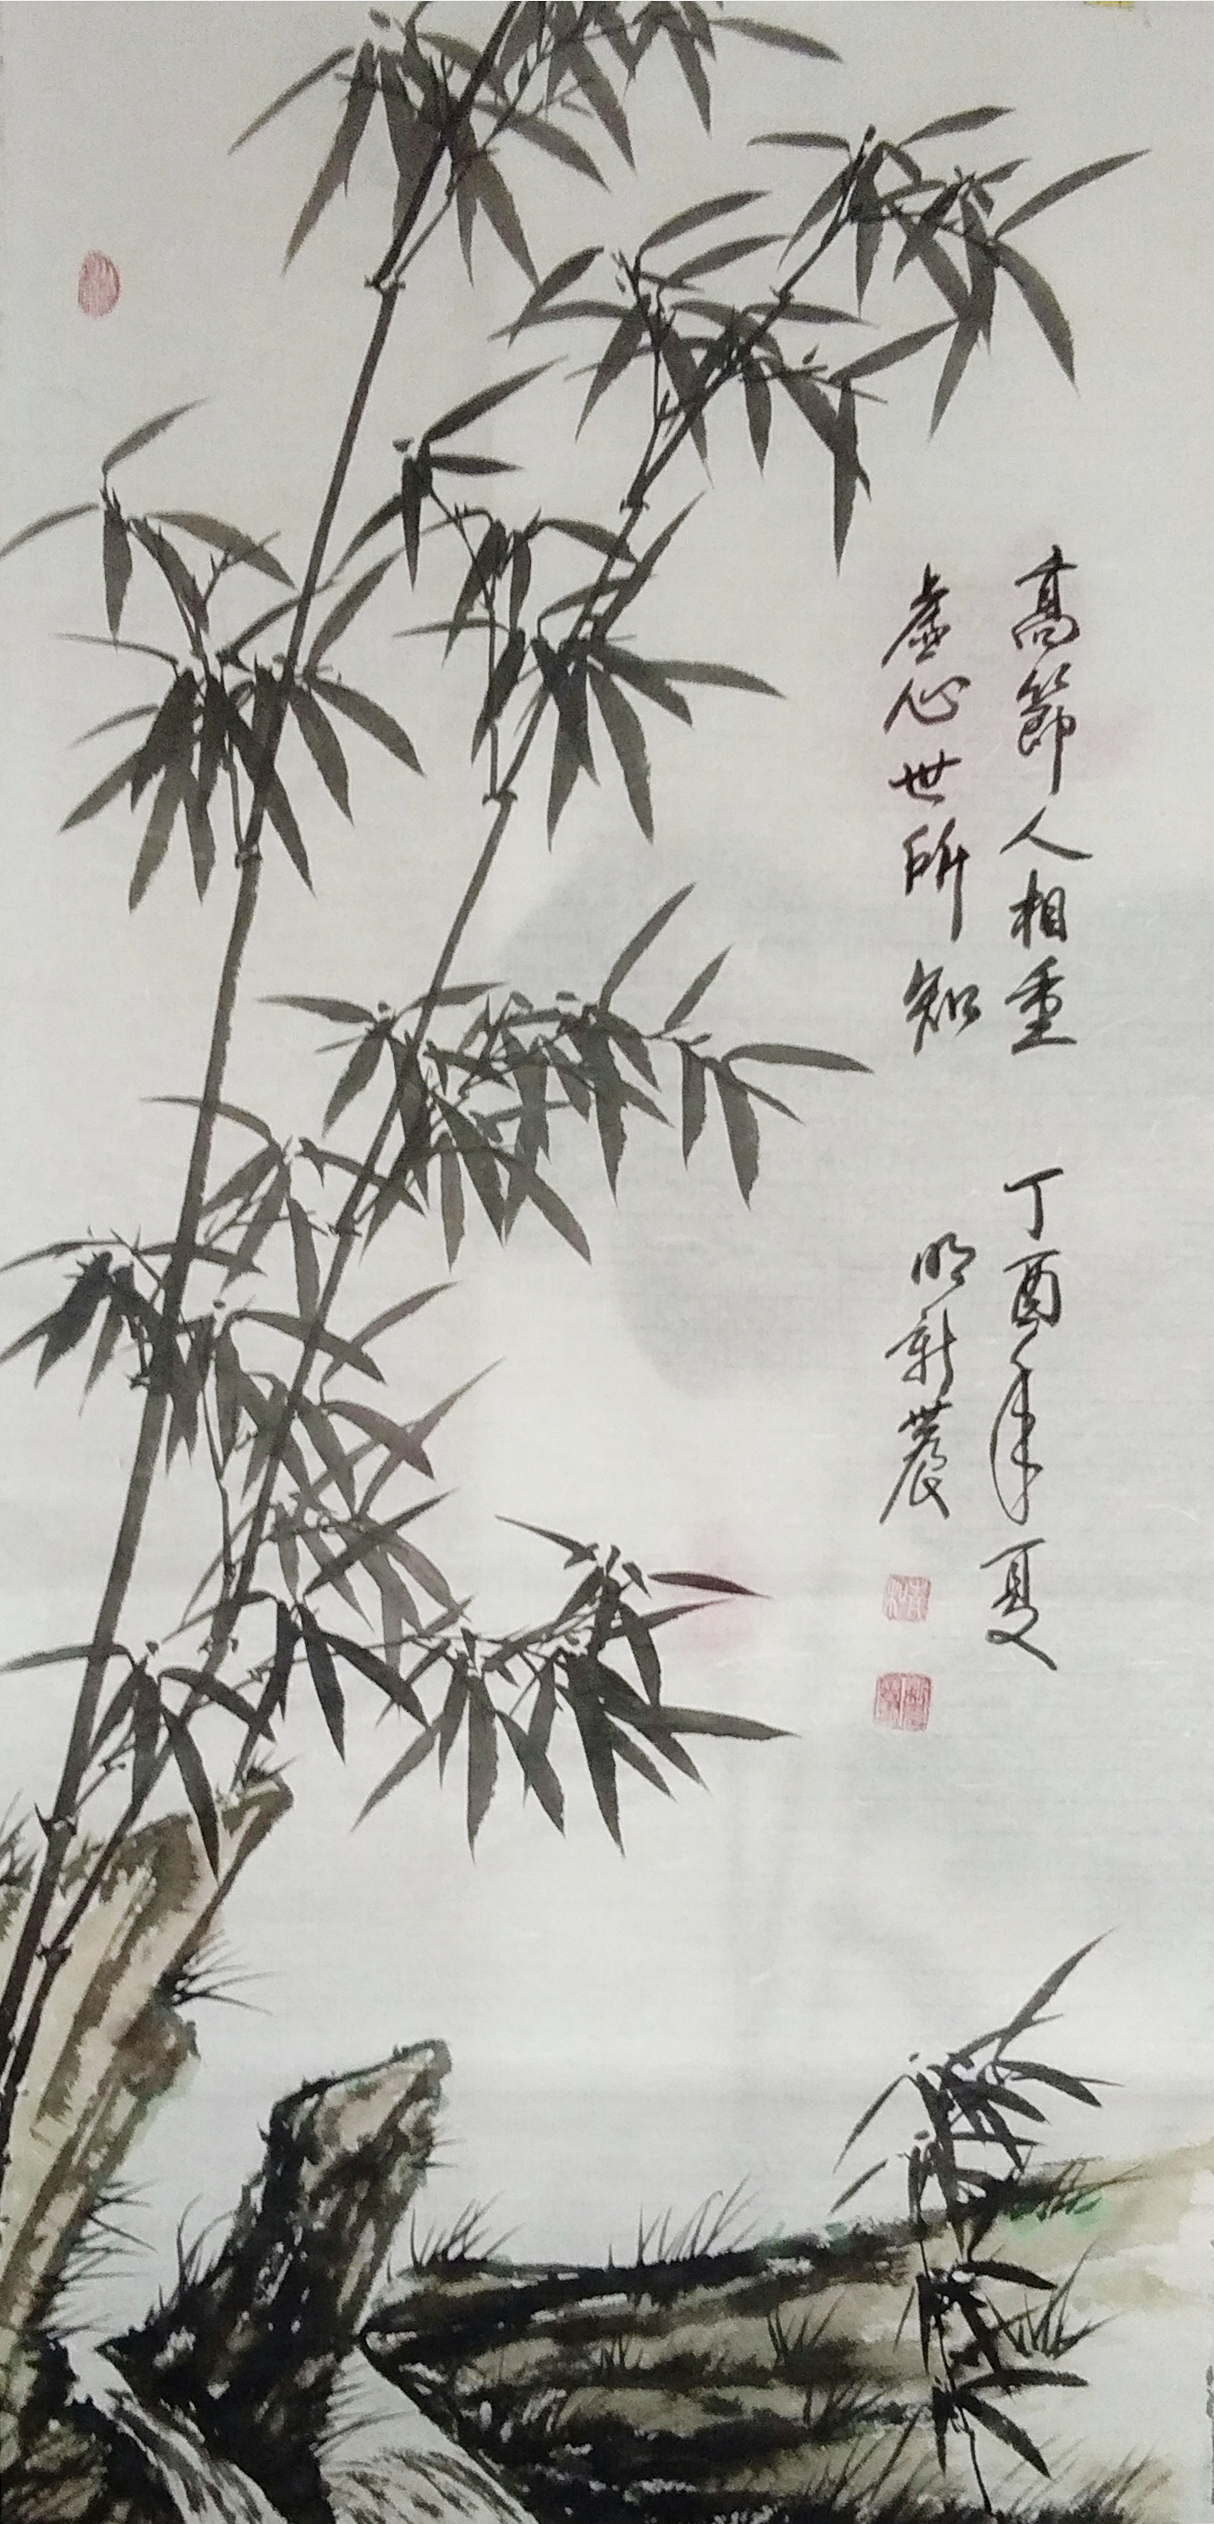 高節人相重
虚心世所知
丁酉年夏
明新農